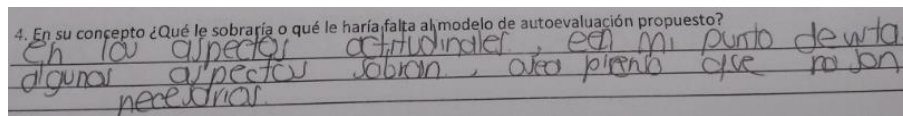 4. En su concepto ¿Qué le sobraría o qué le haría falta al modelo de autoevaluación propuesto?
En los aspectos actitudinales, een mi punto de vista
algunos aspectos sobran, pienso que no son
necesarios.